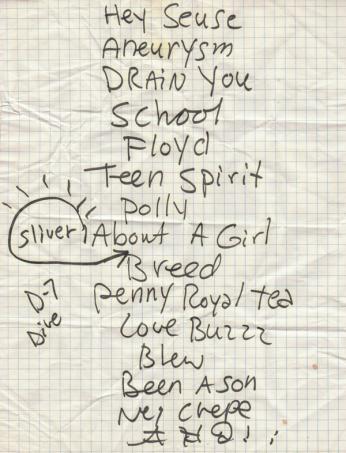 Hey Seuse
Aneurysm
DRAiN You
School
Floyd
Teen Spirit
Polly
sliver
About A Girl
Breed
D-7
Dive
Penny Royal tea
Love Buzzz
Blew
Been A son